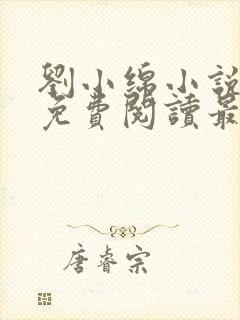 劉小綿小說
免費閱讀最
唐睿宗